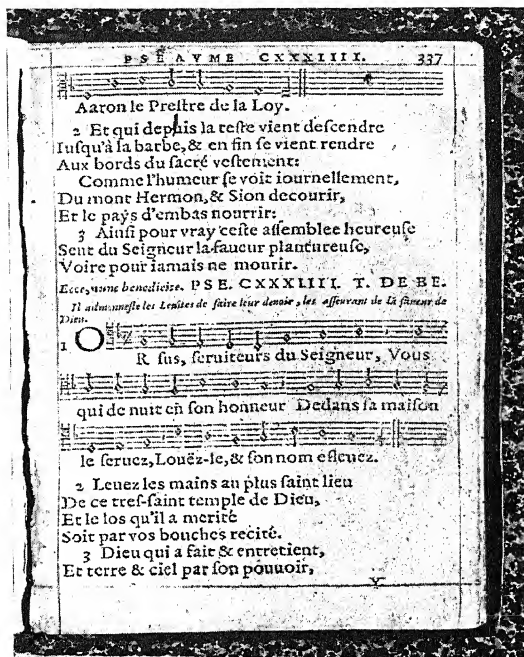 PSEAVME CXXXIIII. 337
Aaron le Preſtre de la Loy.
2 Et qui depuis la teſte vient deſcendre
Iuſqu'à ſa barbe, & en fin ſe vient rendre
Aux bords du ſacré veſtement:
Comme l'humeur ſe voit iournellement,
Du mont Hermon, & Sion decourir,
Et le pays d'embas nourrir:
3 Ainſi pour vray ceſte aſſemblee heureuſe
Sent du Seigneur la faueur plantureuſe,
Voire pour iamais ne mourir.
Ecce, nunc benedicite. PSE. CXXXIIII. T. DE BE.
Il admonneſte les Leuites de faire leur deuoir, les aſſeurant de la faueur de
Dieu.
1 O
R ſus, ſeruiteurs du Seigneur, Vous
qui de nuit en ſon honneur Dedans ſa maiſon
le ſeruez, Louëz-le, & ſon nom eſleuez.
2 Leuez les mains au plus ſaint lieu
De ce treſ-ſaint temple de Dieu,
Et le los qu'il a merité
Soit par vos bouches recité.
3 Dieu qui a fait & entretient,
Et terre & ciel par ſon pouuoir,